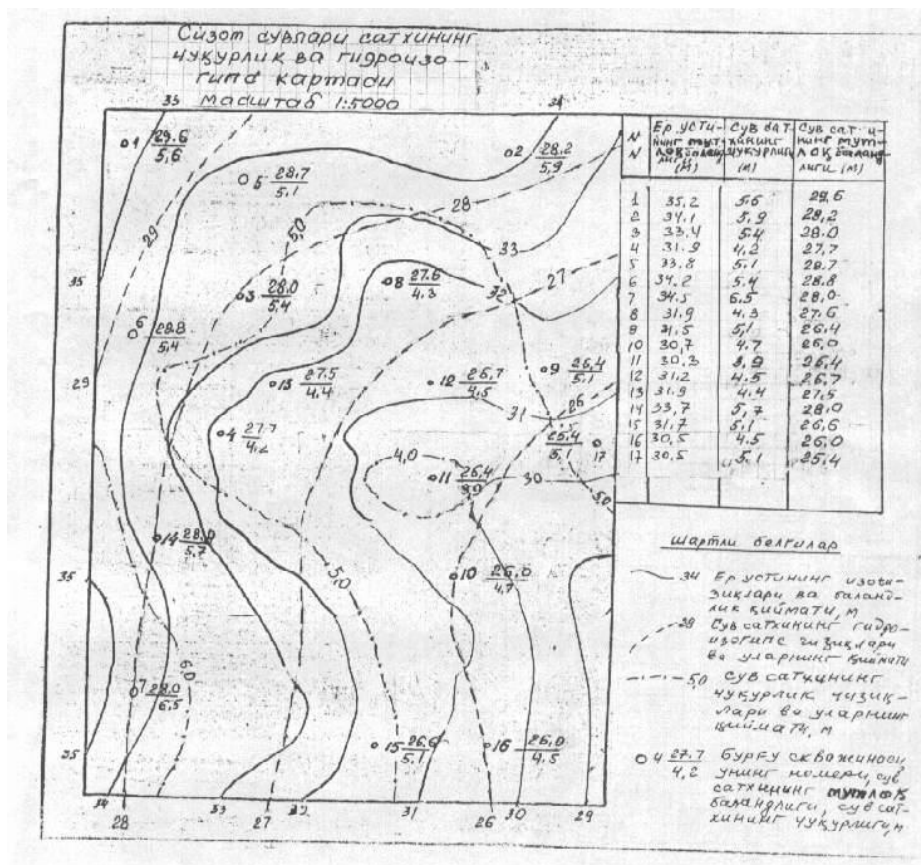 Сизот сувлари сатхининг
чуқурлик ва гидроизо-
гипс картаси
масштаб 1:5000
33
34
o1 29.6
5,6
o2 28.2
5,9
o5 28,7
5,1
29
28
5,0
33
27
35
o3 28.0
5,4
o8 27.6
4,3
32
6
28.8
5,4
o13 27.5
4,4
o12 26,7
4,5
o9 26,4
5,1
26
29
31
o4 27.7
4,2
25,4
5,1
17
4,0
o11 26,4
3,9
30
5,0
o14 28,0
5,7
5,0
o10 26,0
4,7
35
6,0
o7 28.0
6,5
35
o15 26,6
5,1
o16 26,0
4,5
34
33
32
31
30
29
28
27
26
N
N
Ер усти-
нинг мут-
лоқ балан-
(м)
Сув сат-
хининг
чуқурлиги
(м)
Сув сат-и-
нинг мут-
лоқ баланд-
лиги (м)
1 35,2 5,6 29,6
2 34,1 5,9 28,2
3 33,4 5,4 28.0
4 31.9 4,2 27,7
5 33,8 5,1 28.7
6 34.2 5,4 28.8
7 34,5 6,5 28,0
8 31,9 4,3 27.6
9 31,5 5,1 26.4
10 30,7 4.7 26,0
11 30,3 3,9 26,4
12 31,2 4,5 26,7
13 31.9 4.4 27,5
14 33,7 5,7 28,0
15 31,7 5,1 26,6
16 30,5 4,5 26,0
17 30,5 5,1 25,4
шартли белгилар
34 Ер устининг изочи-
зиқлари ва баланд-
лик қиймати, м
28 Сув сатхининг гидро-
изогипс чизиқлари
ва уларнинг қиймати
5,0 Сув сатхининг
чуқурлик чизиқ-
лари ва уларнинг
қиймати, м
o4 27.7
4,2
Бурғу скважинаси,
унинг номери, сув
сатхининг мутлоқ
баландлиги, сув сат-
хининг чуқурлиги, м